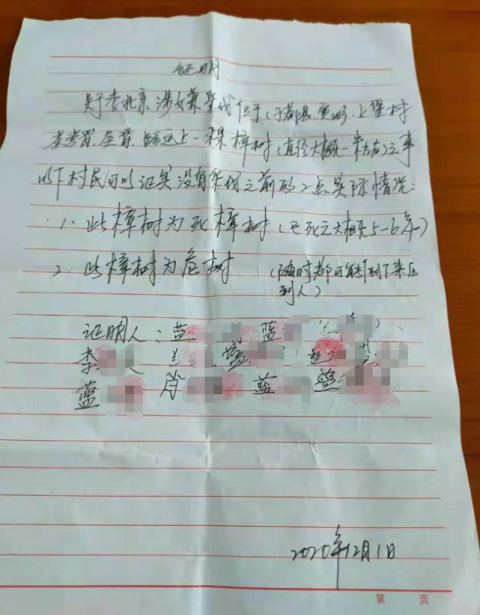 证明
关于李北京涉嫌采伐位于(于都县 上堡村
屋背 路边上一棵樟树(直径大概一米左右)之事
以下村民可以证实没有采伐之前的2点实际情况:
1、此樟树为死樟树(已死之大概5-6年)
2、此樟树为危树(随时都可能倒下来压
到人)
证明人:蓝 蓝 兰
李 蓝
蓝 肖 蓝
2020年12月1日
第 页